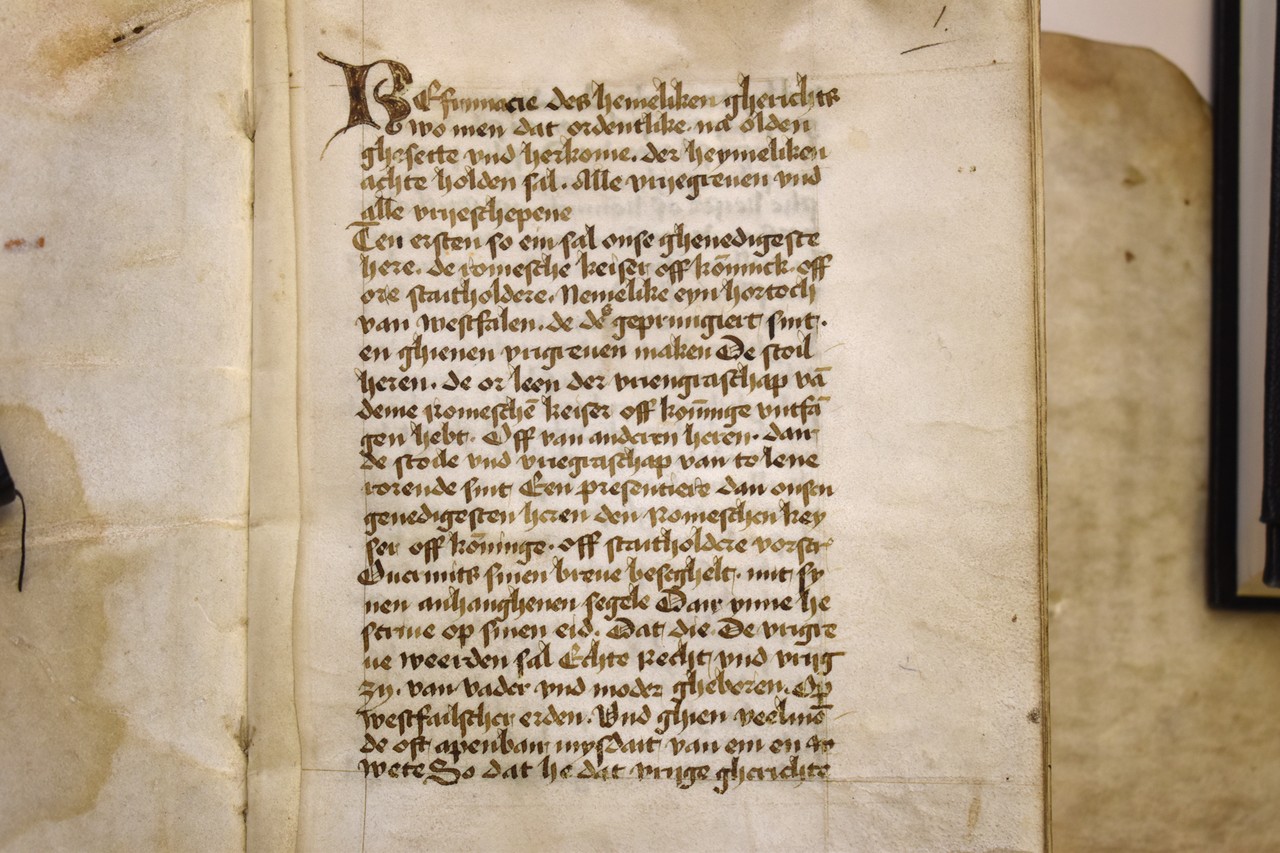 REformacie des hemeliken gherichts
wo men dat ordentlike na olden
ghesette vnd herkome. der heymeliken
achte holden sal. Alle vrijegreuen vnd
alle vrijeschepene
Ten ersten so en sal onse ghenedigeste
here. de romesche keiser off kōninck. off
ore staitholdere. Nemelike eyn hertoch
van westfalen. de
en ghienen vrigreuen maken De stoil
heren. de or leen der vriengraschap vā
deme Romeschē keiser off kōninge vntfā
gen hebt. Off van anderen heren. dair
de stoile vnd vriegraschap van to lene
rorende sint Een presentiere dan onsen
genedigesten heren den Romeschen key
ser off kōninge. off staitholdere vorscr
Ouermits sinen breue beseghelt. mit sy
nen anhanghenen segele Dair ynne he
scriue op sinen eid. Dat die De vrigre
ue weerden sal Echte Recht vnd vrijg
zy. van vader vnd moder gheboren. Op
westfailscher erden. Vnd ghien veelmō
de oft apenbair mysdait van em en
wete So dat he dat vrijge gherichte